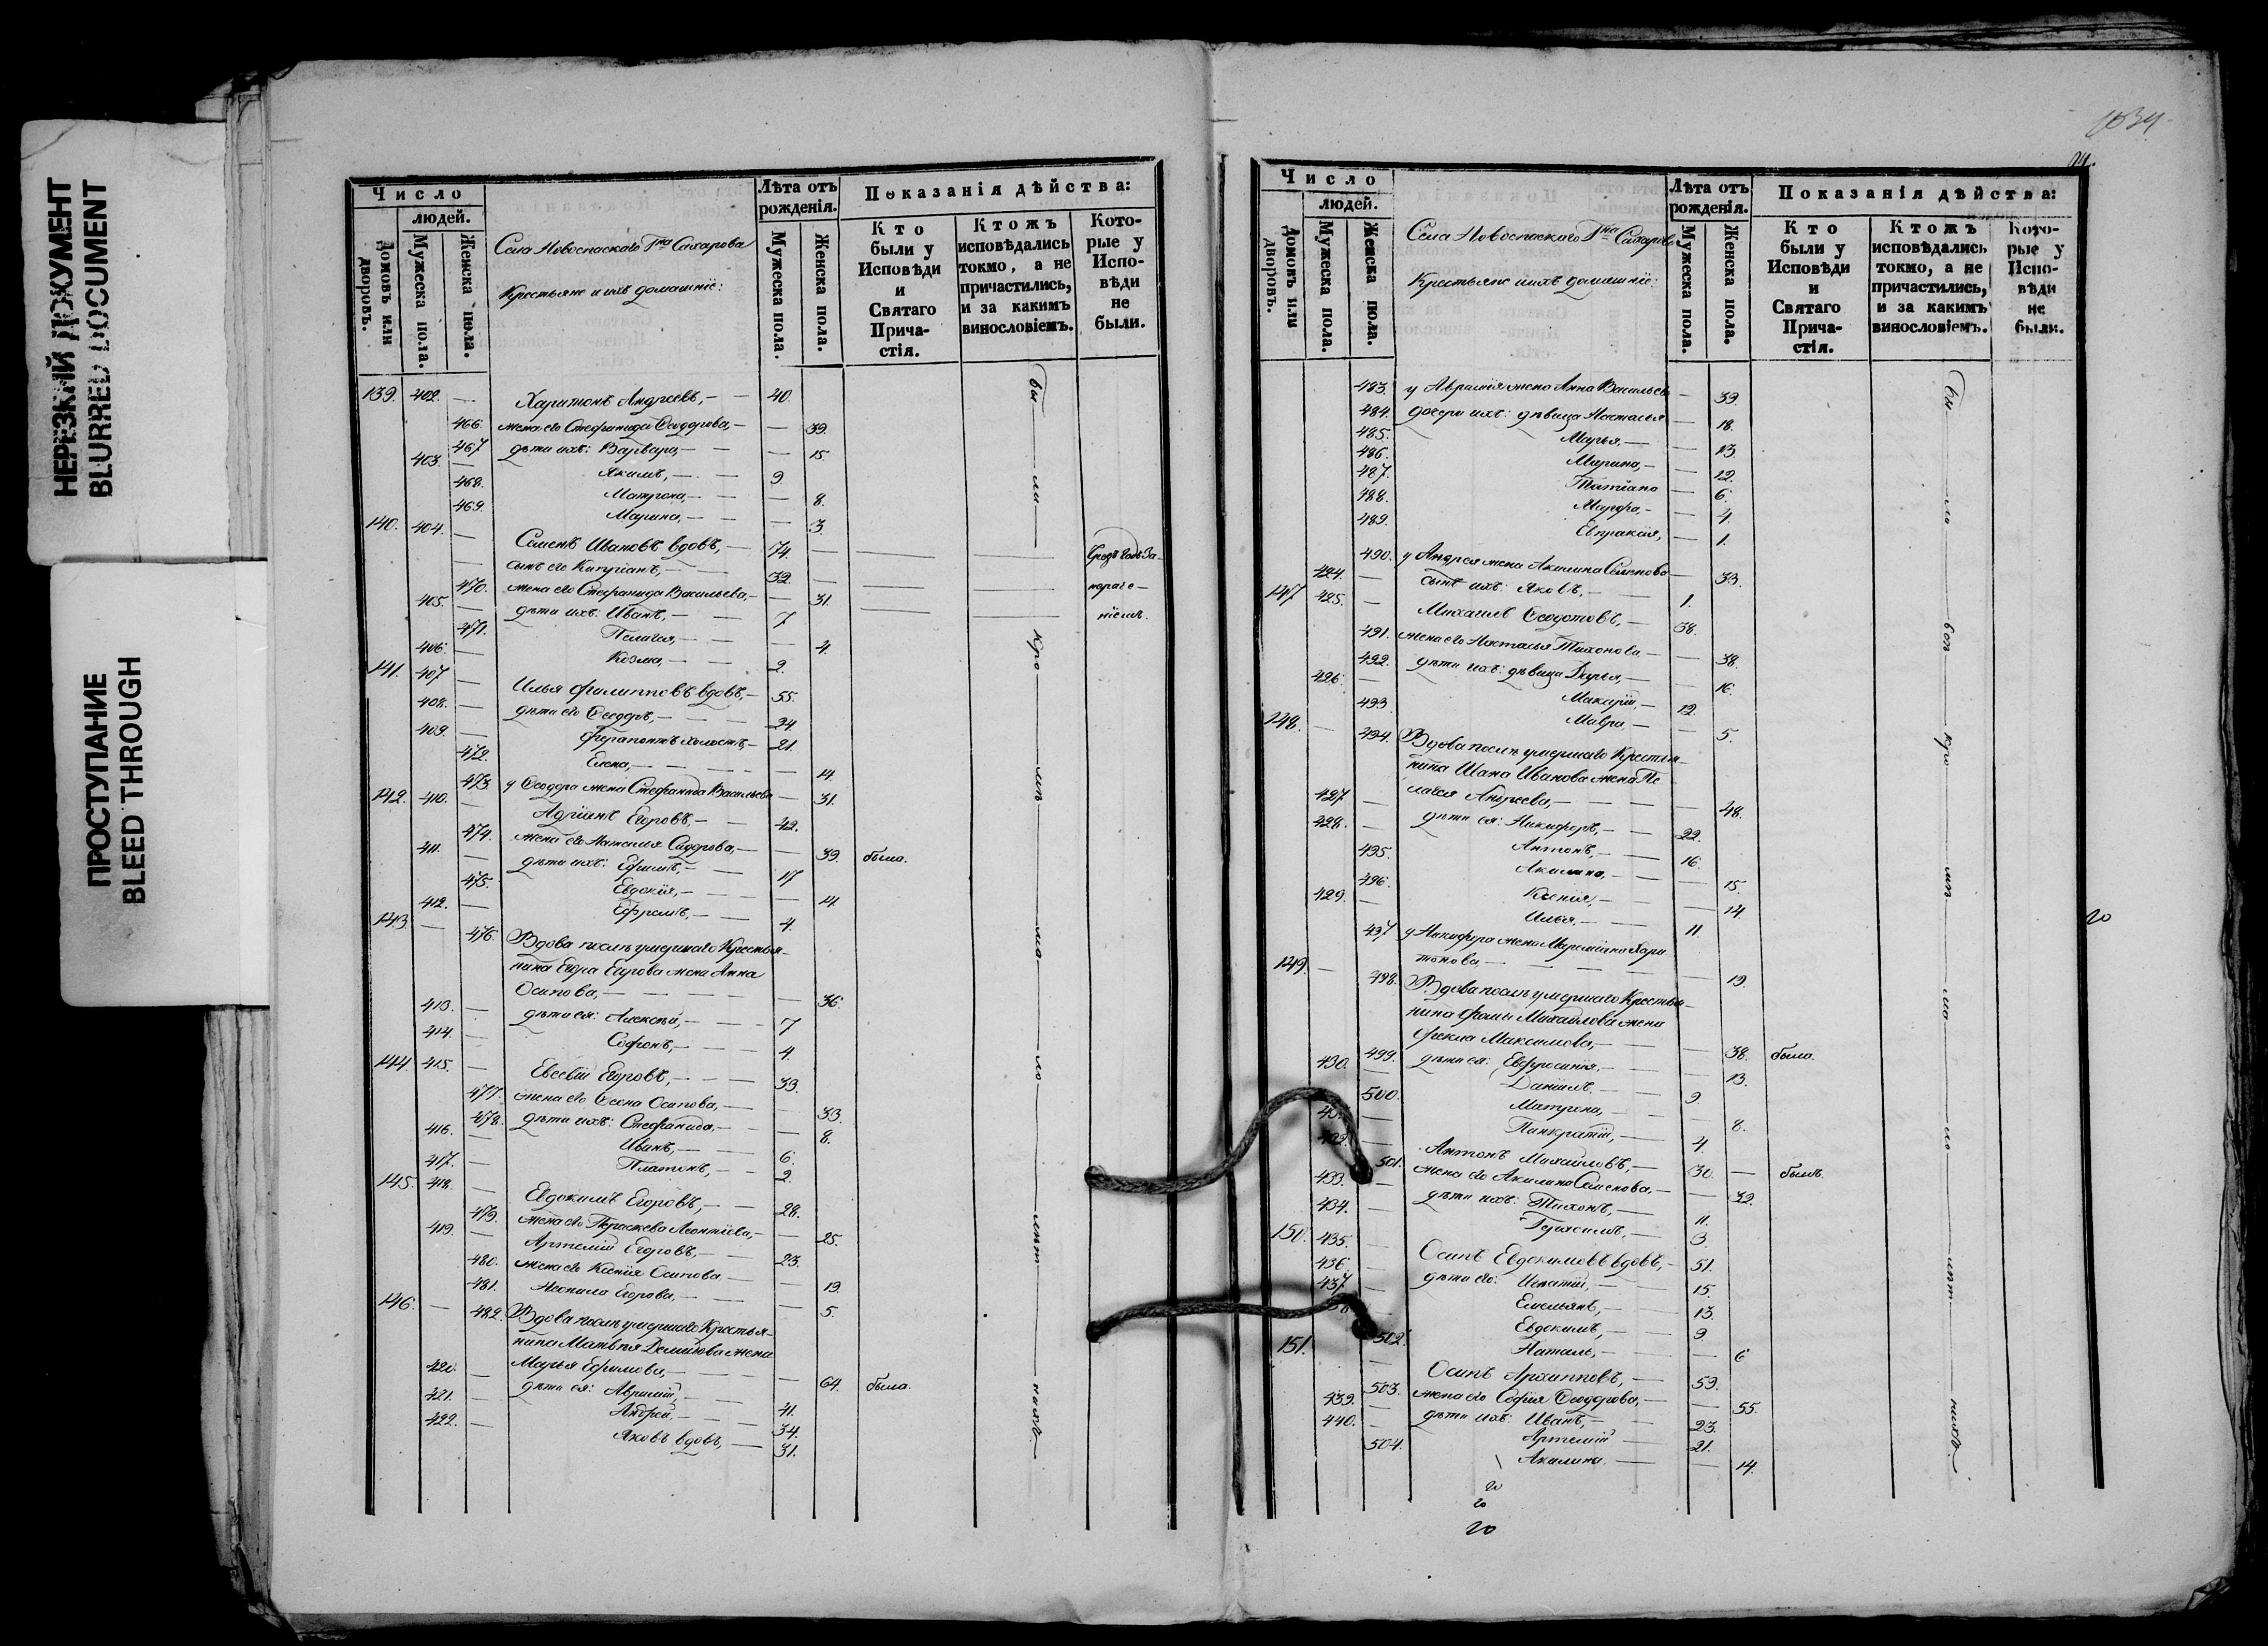 НЕРЕЗКИЙ ДОКУМЕНТ
BLURRED DOCUMENT
ПРОСТУПАНИЕ
BLEED THROUGH
Число
людей.
Домовъ или дворовъ.
Мужеска пола.
Женска пола.
Села Новоспаскаго Гна Сахарова
Крестьяне и ихъ домашніе:
Лѣта отъ рожденія.
Мужеска пола.
Женска пола.
Показанія дѣйства:
Кто были у Исповѣди и Святаго Причастія.
Ктожъ исповѣдались токмо, а не причастились, и за какимъ винословіемъ.
Которые у Исповѣди не были.
139. 402. — Харитонъ Андреевъ, — 40.
466. жена его Стефанида Ѳеодорова, — 39.
467 дѣти ихъ: Варвара, — 15.
403. — Якимъ, — 9.
468. Матрона, — 8.
469. Марина, — 3.
140. 404. — Семенъ Ивановъ вдовъ, — 74.
— сынъ его Кипріанъ, — 32.
470. жена его Стефанида Васильева, — 31.
405. — дѣти ихъ: Иванъ, — 7
471. Пелагія, — 4.
406. — Козма, — 2.
141. 407 — Илья Филипповъ вдовъ, — 55.
408. — дѣти его Ѳеодоръ, — 24
409. — Ферапонтъ холостъ, — 21.
472. Елена, — 14.
473. у Ѳеодора жена Стефанида Васильева — 31.
142. 410. — Адріанъ Егоровъ, — 42.
474. жена его Наталья Сидорова, — 39. была.
411. — дѣти ихъ: Ефимъ, — 17
475. Евдокія, — 14.
412. — Ефремъ, — 4.
143 — 476. Вдова послѣ умершаго Крестья-
нина Егора Егорова жена Анна
Осипова, — 36.
413. — дѣти ея: Алексѣй, — 7
414. — Софонъ, — 4.
144. 415. — Евсевій Егоровъ, — 33.
477. жена его Ѳеона Осипова, — 33.
478. дѣти ихъ: Стефанида, — 8.
416. — Иванъ, — 6.
417. — Платонъ, — 2.
145. 418. — Евдокимъ Егоровъ, — 28.
479. жена его Параскева Леонтіева, — 25.
419. — Артемій Егоровъ, — 23.
480. жена его Ксенія Осипова — 19.
481. Неонила Егорова, — 5.
146. — 482. Вдова послѣ умершаго Крестья-
нина Матвѣя Демидова жена
Марья Ефимова, — 64. была.
420. — дѣти ея: Аврамій, — 41.
421. — Андрей, — 34.
422. — Яковъ вдовъ, — 31.
бы ли кро мѣ ма ло лѣт нихъ.
1034
Число
людей.
Домовъ или дворовъ.
Мужеска пола.
Женска пола.
Села Новоспаскаго Гна Сахарова
Крестьяне и ихъ домашніе:
Лѣта отъ рожденія.
Мужеска пола.
Женска пола.
Показанія дѣйства:
Кто были у Исповѣди и Святаго Причастія.
Ктожъ исповѣдались токмо, а не причастились, и за какимъ винословіемъ.
Которые у Исповѣди не были.
483. у Аврамія жена Анна Васильева — 39.
484. дочери ихъ: дѣвица Настасья — 18.
485. Марья, — 13.
486. Марина, — 12.
487. Татіана — 6.
488. Марфа, — 4.
489. Евпраксія, — 1.
490. у Андрея жена Акилина Семенова — 33.
424. — сынъ ихъ: Яковъ, — 1.
147 425. — Михаилъ Ѳеодотовъ, — 38.
491. жена его Настасья Тихонова — 38.
492. дѣти ихъ: дѣвица Дарья, — 16.
426. — Макарій, — 12.
493 Мавра, — 5.
148. — 494. Вдова послѣ умершаго Крестья-
нина Ивана Иванова жена Пе-
лагея Андреева, — 48.
427 — дѣти ея: Никифоръ, — 22.
428. — Антонъ, — 16.
495. Акилина, — 15.
496. Ксенія, — 14.
429. — Илья, — 11.
497 у Никифора жена Мареміана Хари
тонова, — 19.
149. — 498. Вдова послѣ умершаго Крестья-
нина Фомы Михайлова жена
Фекла Максимова, — 38. была.
499. дѣти ея: Евфросинія, — 13.
430. — Даніилъ — 9.
500. Матрона, — 8.
Панкратій, — 4.
Антонъ Михайловъ, — 30. — былъ.
501. жена его Акилина Семенова, — 32.
433. — дѣти ихъ: Тихонъ, — 11.
434. — Герасимъ, — 3.
150. 435. — Осипъ Евдокимовъ вдовъ, — 51.
436. — дѣти его: Игнатій, — 15.
437 — Емельянъ, — 13.
Евдокимъ, — 9.
502. Наталь, — 6
151. — Осипъ Архиповъ, — 59.
503. жена его Софія Ѳеодорова, — 55.
439. — дѣти ихъ: Иванъ, — 23.
440. — Артемій — 21.
504. Акилина — 14.
бы ли всѣ кро мѣ ма ло лѣт нихъ.
20
20
20
20